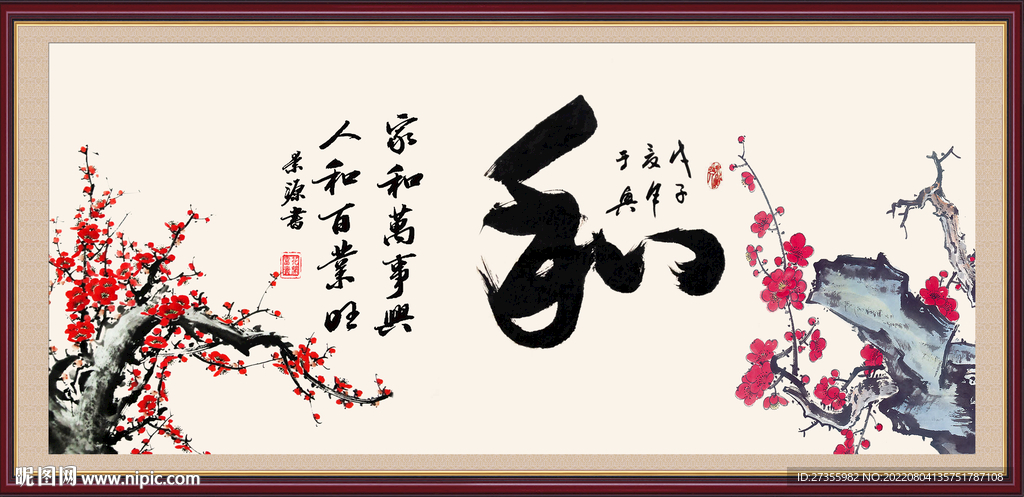 戊子
夏年
于奥
和
家和萬事興
人和百業旺
景源書
昵图网 www.nipic.com
ID:27355982 NO:20220804135751787108